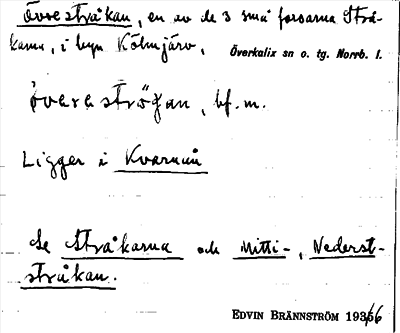 Övre stråkan, en av de 3 små forsarna Strå-
karna, i byn Kölmjärv,
Överkalix sn o. tg. Norrb. l.
övereströgan, bf. m.
Ligger i Kvarnån
Se Stråkarna och Mitti-, Nederst-
stråkan.
EDVIN BRÄNNSTRÖM 1936